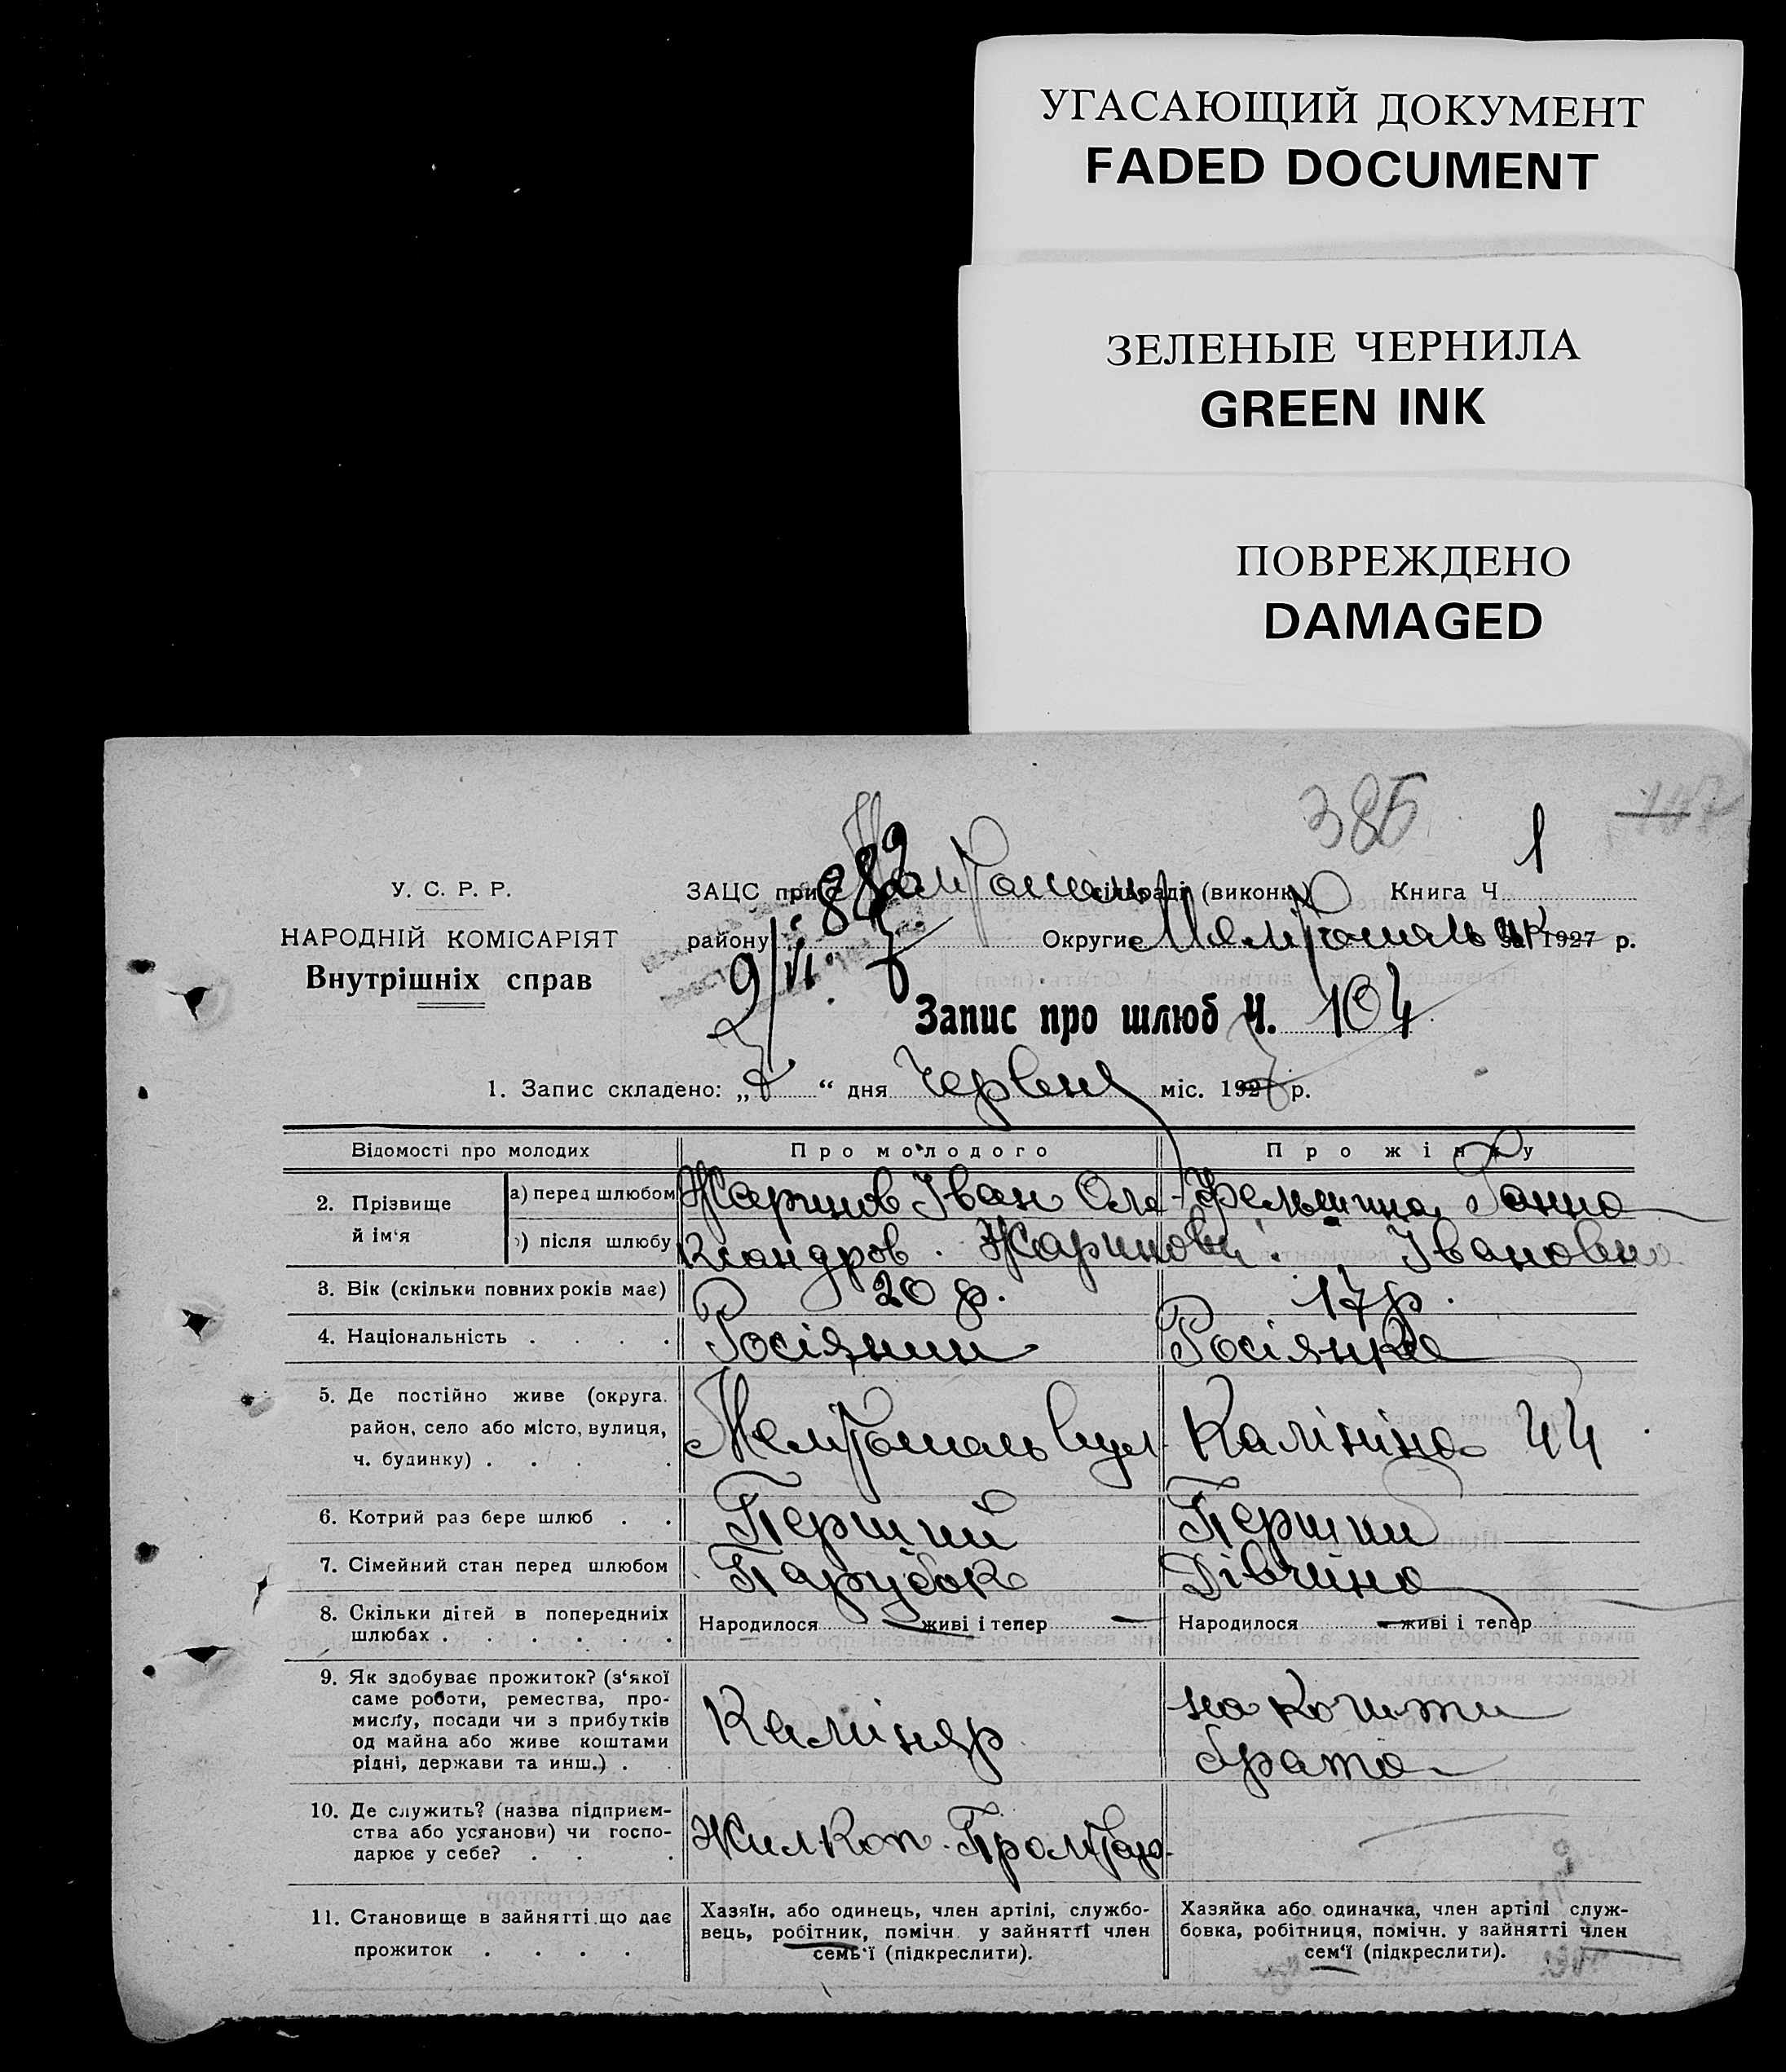 УГАСАЮЩИЙ ДОКУМЕНТ
FADED DOCUMENT
ЗЕЛЕНЫЕ ЧЕРНИЛА
GREEN INK
ПОВРЕЖДЕНО
DAMAGED
385
У. С. Р. Р.
НАРОДНІЙ КОМІСАРІЯТ
Внутрішніх справ
ЗАЦС при сільраді (виконк.) Книга Ч 1
882
району Округи 1927 р.
9/VI
Запис про шлюб Ч. 104
1. Запис складено: „ “ дня Червня міс. 192 р.
Відомості про молодих Про молодого Про жінку
2. Прізвище й ім‘я
а) перед шлюбом Жаринов Іван Оле- Ганна
б) після шлюбу ксандров. Жаринови. Івановна
3. Вік (скільки повних років має) 20 р. 17 р.
4. Національність Росіянин Росіянка
5. Де постійно живе (округа.
район, село або місто, вулиця,
ч. будинку) Мелітополь вул Калініна 44
6. Котрий раз бере шлюб Перший Перший
7. Сімейний стан перед шлюбом Парубок Дівчина
8. Скільки дітей в попередниіх
шлюбах Народилося — живі і тепер — Народилося — живі і тепер
9. Як здобуває прожиток? (з‘якої
саме роботи, ремества, про-
мислу, посади чи з прибутків
од майна або живе коштами
рідні, держави та инш.)
Каміняр
на кошти
брата
10. Де служить? (назва підприєм-
ства або установи) чи госпо-
дарює у себе?
Жилкоп.
11. Становище в зайнятті що дає
прожиток
Хазяїн, або одинець, член артілі, службо-
вець, робітник, помічн. у зайнятті член
семь‘ї (підкреслити).
Хазяйка або одиначка, член артілі служ-
бовка, робітниця, помічн. у зайнятті член
сем‘ї (підкреслити).